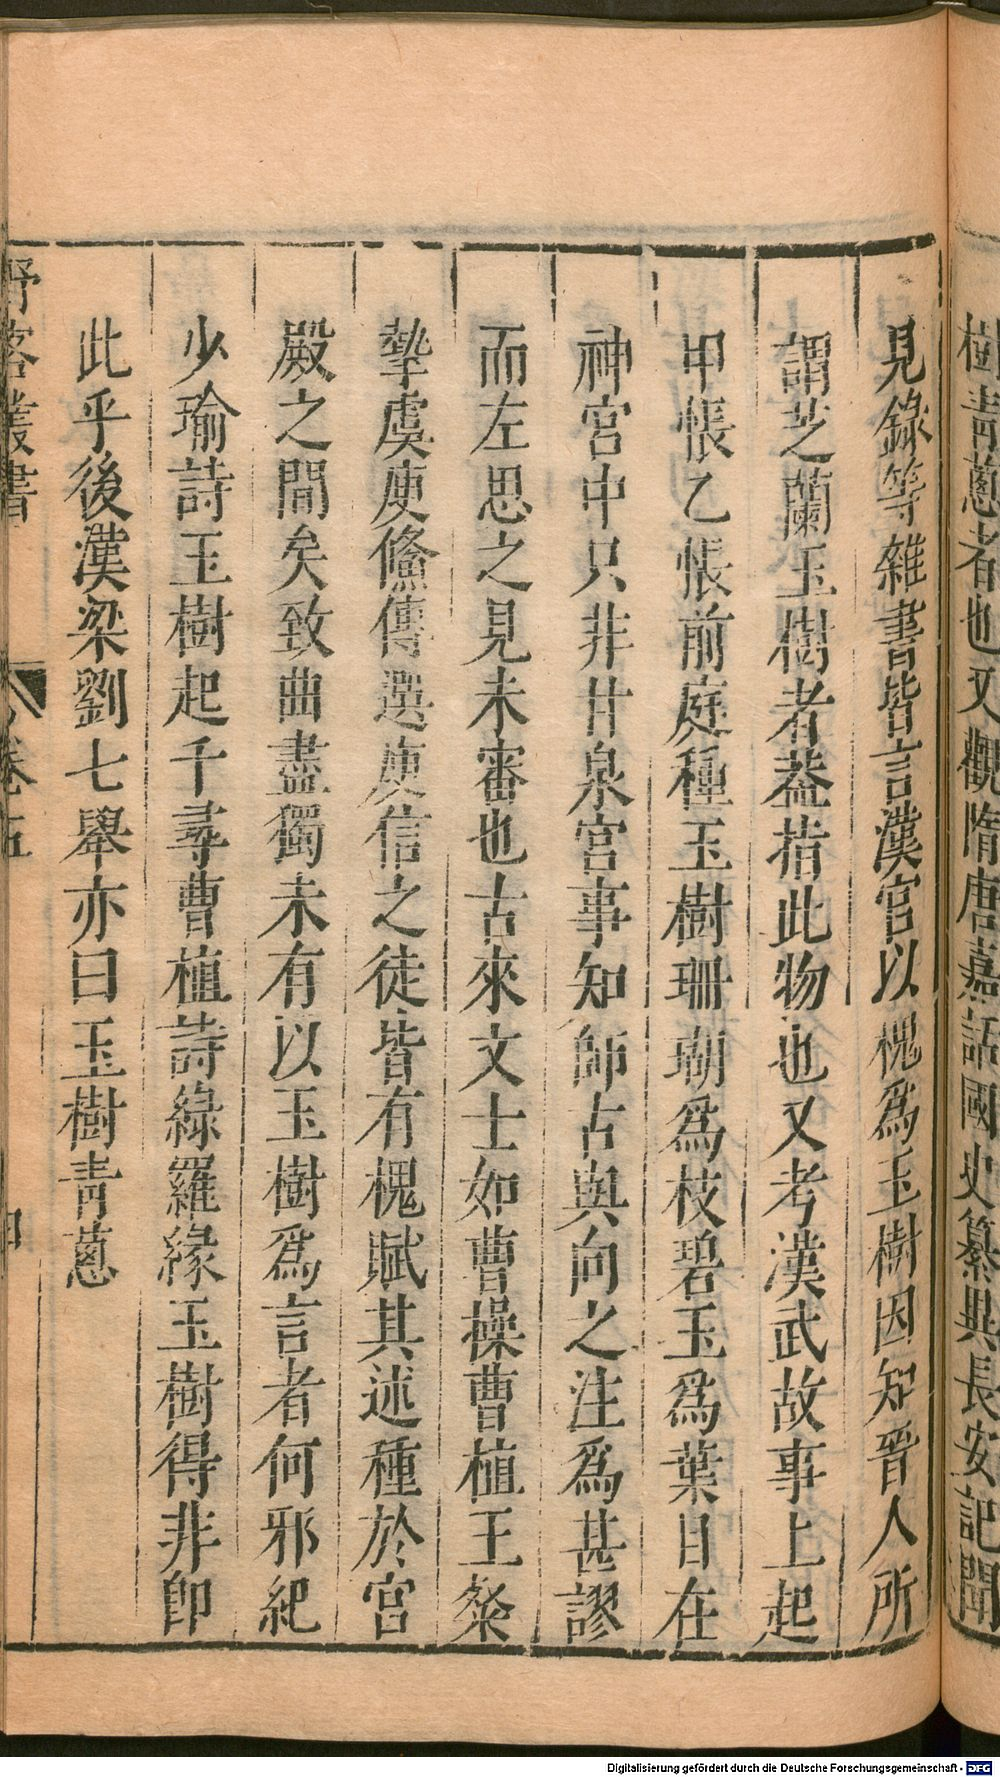 樹青蔥者也又觀隋唐嘉話國史纂與長安記聞
見錄等雜書皆言漢宮以槐爲玉樹因知晉人所
謂芝蘭玉樹者葢指此物也又考漢武故事上起
甲帳乙帳前庭種玉樹珊瑚爲枝碧玉爲葉且在
神宮中只非甘泉宮事知師古與向之注爲甚謬
而左思之見未審也古來文士如曹操曹植王粲
摯虞庾儵傅選庾信之徒皆有槐賦其述種於宮
殿之間矣致曲盡獨未有以玉樹爲言者何邪紀
少瑜詩玉樹起千尋曹植詩綠羅緣玉樹得非卽
此乎後漢梁劉七舉亦曰玉樹青蔥
野客叢書 卷五 四
Digitalisierung gefördert durch die Deutsche Forschungsgemeinschaft - DFG